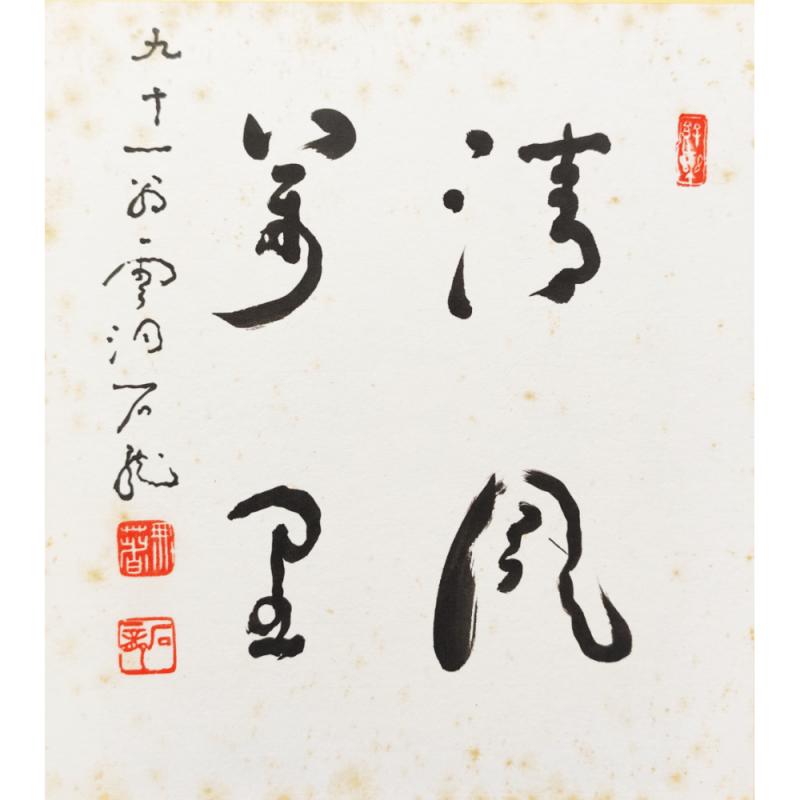 清風
萬里
九十一翁雲洞石龍